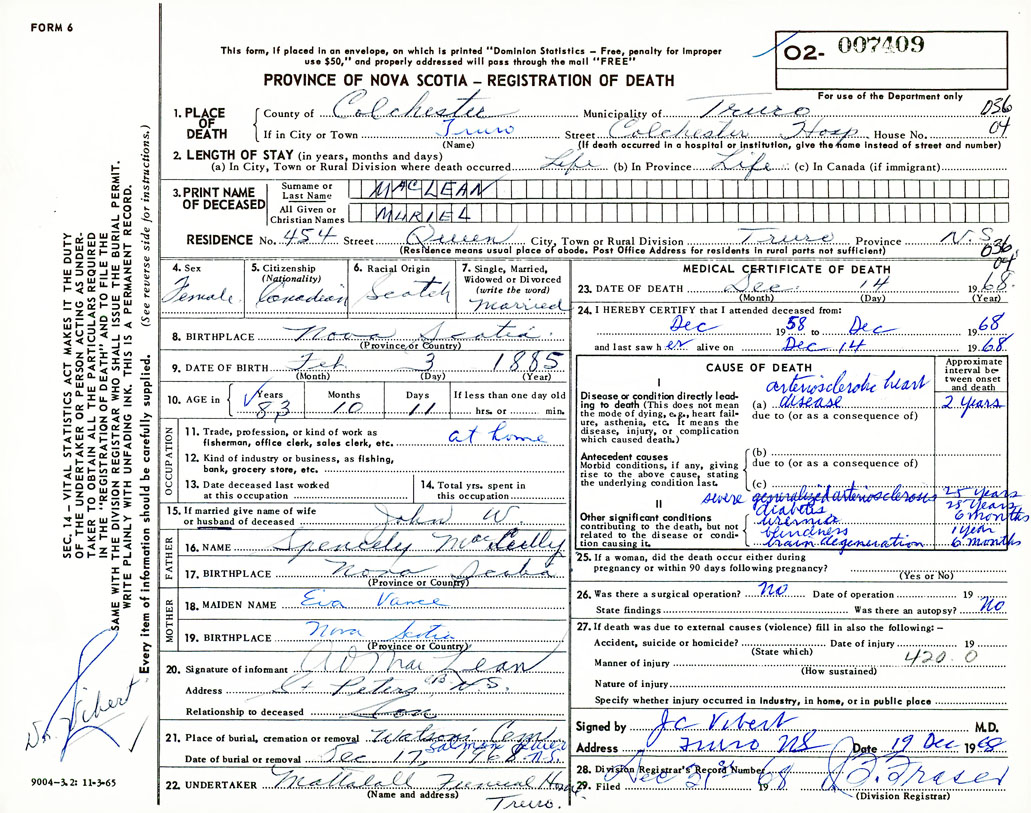 FORM 6
This form, if placed in an envelope, on which is printed "Dominion Statistics – Free, penalty for improper
use $50," and properly addressed will pass through the mail "FREE"
PROVINCE OF NOVA SCOTIA – REGISTRATION OF DEATH
O2- 007409
For use of the Department only
1. PLACE OF DEATH
County of Colchester Municipality of Truro 036
If in City or Town Truro Street Colchester Hosp House No. 04
(Name) (If death occurred in a hospital or institution, give the name instead of street and number)
2. LENGTH OF STAY (in years, months and days)
(a) In City, Town or Rural Division where death occurred Life (b) In Province Life (c) In Canada (if immigrant)
3. PRINT NAME OF DECEASED
Surname or Last Name MACLEAN
All Given or Christian Names MURIEL
RESIDENCE No. 454 Street Queen City, Town or Rural Division Truro Province N.S.
(Residence means usual place of abode. Post Office Address for residents in rural parts not sufficient)
036
04
4. Sex
Female
5. Citizenship
(Nationality)
Canadian
6. Racial Origin
Scotch
7. Single, Married,
Widowed or Divorced
(write the word)
Married
8. BIRTHPLACE Nova Scotia
(Province or Country)
9. DATE OF BIRTH Feb 3 1885
(Month) (Day) (Year)
10. AGE in Years Months Days If less than one day old
83 10 11 hrs. or min.
OCCUPATION
11. Trade, profession, or kind of work as
fisherman, office clerk, sales clerk, etc. at home
12. Kind of industry or business, as fishing,
bank, grocery store, etc.
13. Date deceased last worked
at this occupation
14. Total yrs. spent in
this occupation
15. If married give name of wife
or husband of deceased John W.
FATHER
16. NAME Spencely
17. BIRTHPLACE Nova Scotia
(Province or Country)
MOTHER
18. MAIDEN NAME Eva Vance
19. BIRTHPLACE Nova Scotia
(Province or Country)
20. Signature of informant MacLean
Address St Peters N.S.
Relationship to deceased Son
21. Place of burial, cremation or removal Watson Cem.
Salmon River
Date of burial or removal Dec 17, 1968 N.S.
22. UNDERTAKER Mattatall Funeral Home
(Name and address) Truro.
MEDICAL CERTIFICATE OF DEATH
23. DATE OF DEATH Dec 14 1968
(Month) (Day) (Year)
24. I HEREBY CERTIFY that I attended deceased from:
Dec 1958 to Dec 1968
and last saw h er alive on Dec 14 1968
CAUSE OF DEATH
Approximate
interval be-
tween onset
and death
I
Disease or condition directly lead-
ing to death (This does not mean
the mode of dying, e.g., heart fail-
ure, asthenia, etc. It means the
disease, injury, or complication
which caused death.)
arteriosclerotic heart
(a) disease 2 years
due to (or as a consequence of)
Antecedent causes
Morbid conditions, if any, giving
rise to the above cause, stating
the underlying condition last.
(b)
due to (or as a consequence of)
(c)
II
Other significant conditions
contributing to the death, but not
related to the disease or condi-
tion causing it.
severe generalized arteriosclerosis 25 years
diabetes 25 years
uremia 6 months
blindness 1 year
brain degeneration 6 months
25. If a woman, did the death occur either during
pregnancy or within 90 days following pregnancy?
(Yes or No)
26. Was there a surgical operation? No Date of operation 19
State findings Was there an autopsy? No
27. If death was due to external causes (violence) fill in also the following: –
Accident, suicide or homicide? Date of injury 19
(State which)
Manner of injury 420.0
(How sustained)
Nature of injury
Specify whether injury occurred in industry, in home, or in public place
Signed by J C Vibert M.D.
Address Truro NS Date 19 Dec 1968
28. Division Registrar's Record Number
29. Filed Dec 31 1968 Fraser
(Division Registrar)
SEC. 14 – VITAL STATISTICS ACT MAKES IT THE DUTY
OF THE UNDERTAKER OR PERSON ACTING AS UNDER-
TAKER TO OBTAIN ALL THE PARTICULARS REQUIRED
IN THE "REGISTRATION OF DEATH" AND TO FILE THE
SAME WITH THE DIVISION REGISTRAR WHO SHALL ISSUE THE BURIAL PERMIT.
WRITE PLAINLY WITH UNFADING INK. THIS IS A PERMANENT RECORD.
Every item of information should be carefully supplied. (See reverse side for instructions.)
Dr. Vibert
9004–3.2: 11-3-65